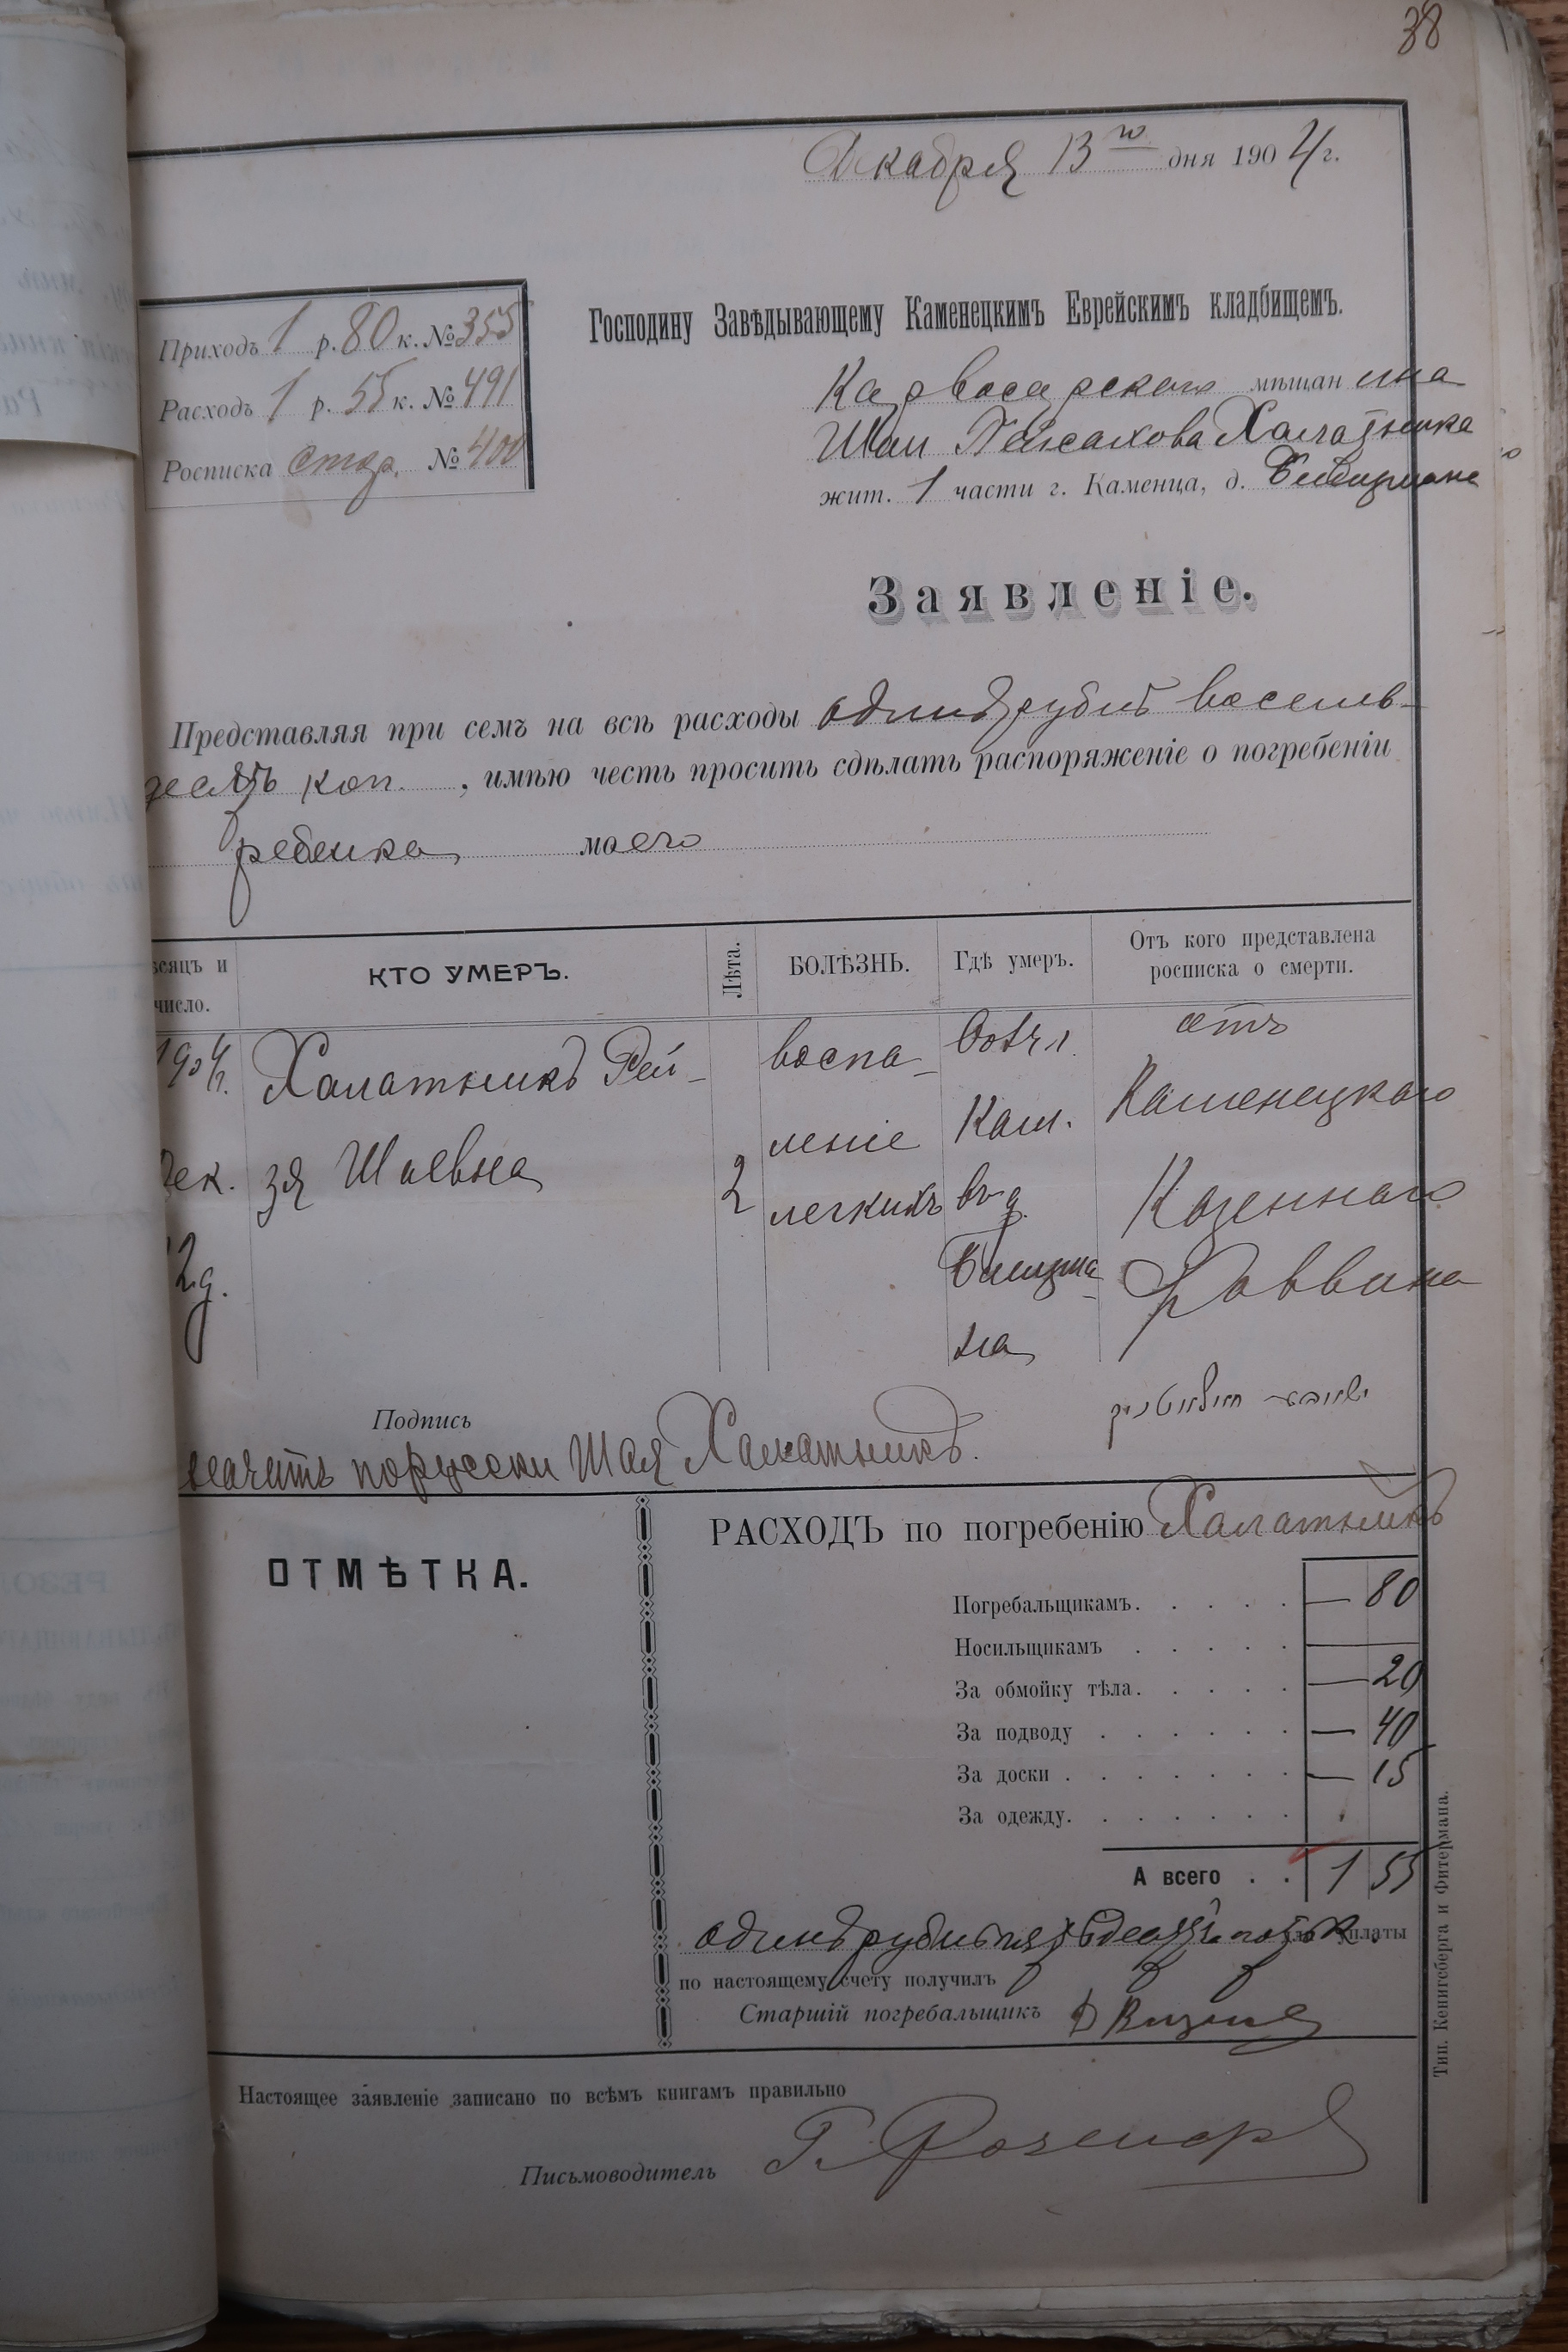 38
Декабря 13го дня 1904 г.
Приходъ 1 р. 80 к. № 355
Расходъ 1 р. 55 к. № 491
Росписка стар. № 400
Господину Завѣдывающему Каменецкимъ Еврейскимъ кладбищемъ.
Карвосарского мѣщанина
Шаи Пейсахова Халатника
жит. 1 части г. Каменца, д.
Заявленіе.
Представляя при семъ на всѣ расходы одинъ рубль восемь-
десятъ коп. , имѣю честь просить сдѣлать распоряженіе о погребеніи
ребенка моего
есяцъ и число.
КТО УМЕРЪ.
Лѣта.
БОЛѢЗНЬ.
Гдѣ умеръ.
Отъ кого представлена росписка о смерти.
1904 г.
дек.
12 д.
Халатникъ Рей-
зя Шаевна
2
воспа-
леніе
легкихъ
Кам.
въ д.
на
отъ
Каменецкаго
Казеннаго
Раввина
Подпись
значитъ порусски Шая Халатникъ.
ОТМѢТКА.
РАСХОДЪ по погребенію Халатникъ
Погребальщикамъ. . . . . — 80
Носильщикамъ . . . . . —
За обмойку тѣла. . . . . — 20
За подводу . . . . . . — 40
За доски . . . . . . . — 15
За одежду. . . . . . .
А всего . . 1 55
одинъ рубль пятьдесятъ пять к. уплаты
по настоящему счету получилъ
Старшій погребальщикъ
Настоящее заявленіе записано по всѣмъ книгамъ правильно
Письмоводитель
Тип. Кенигсберга и Фитермана.